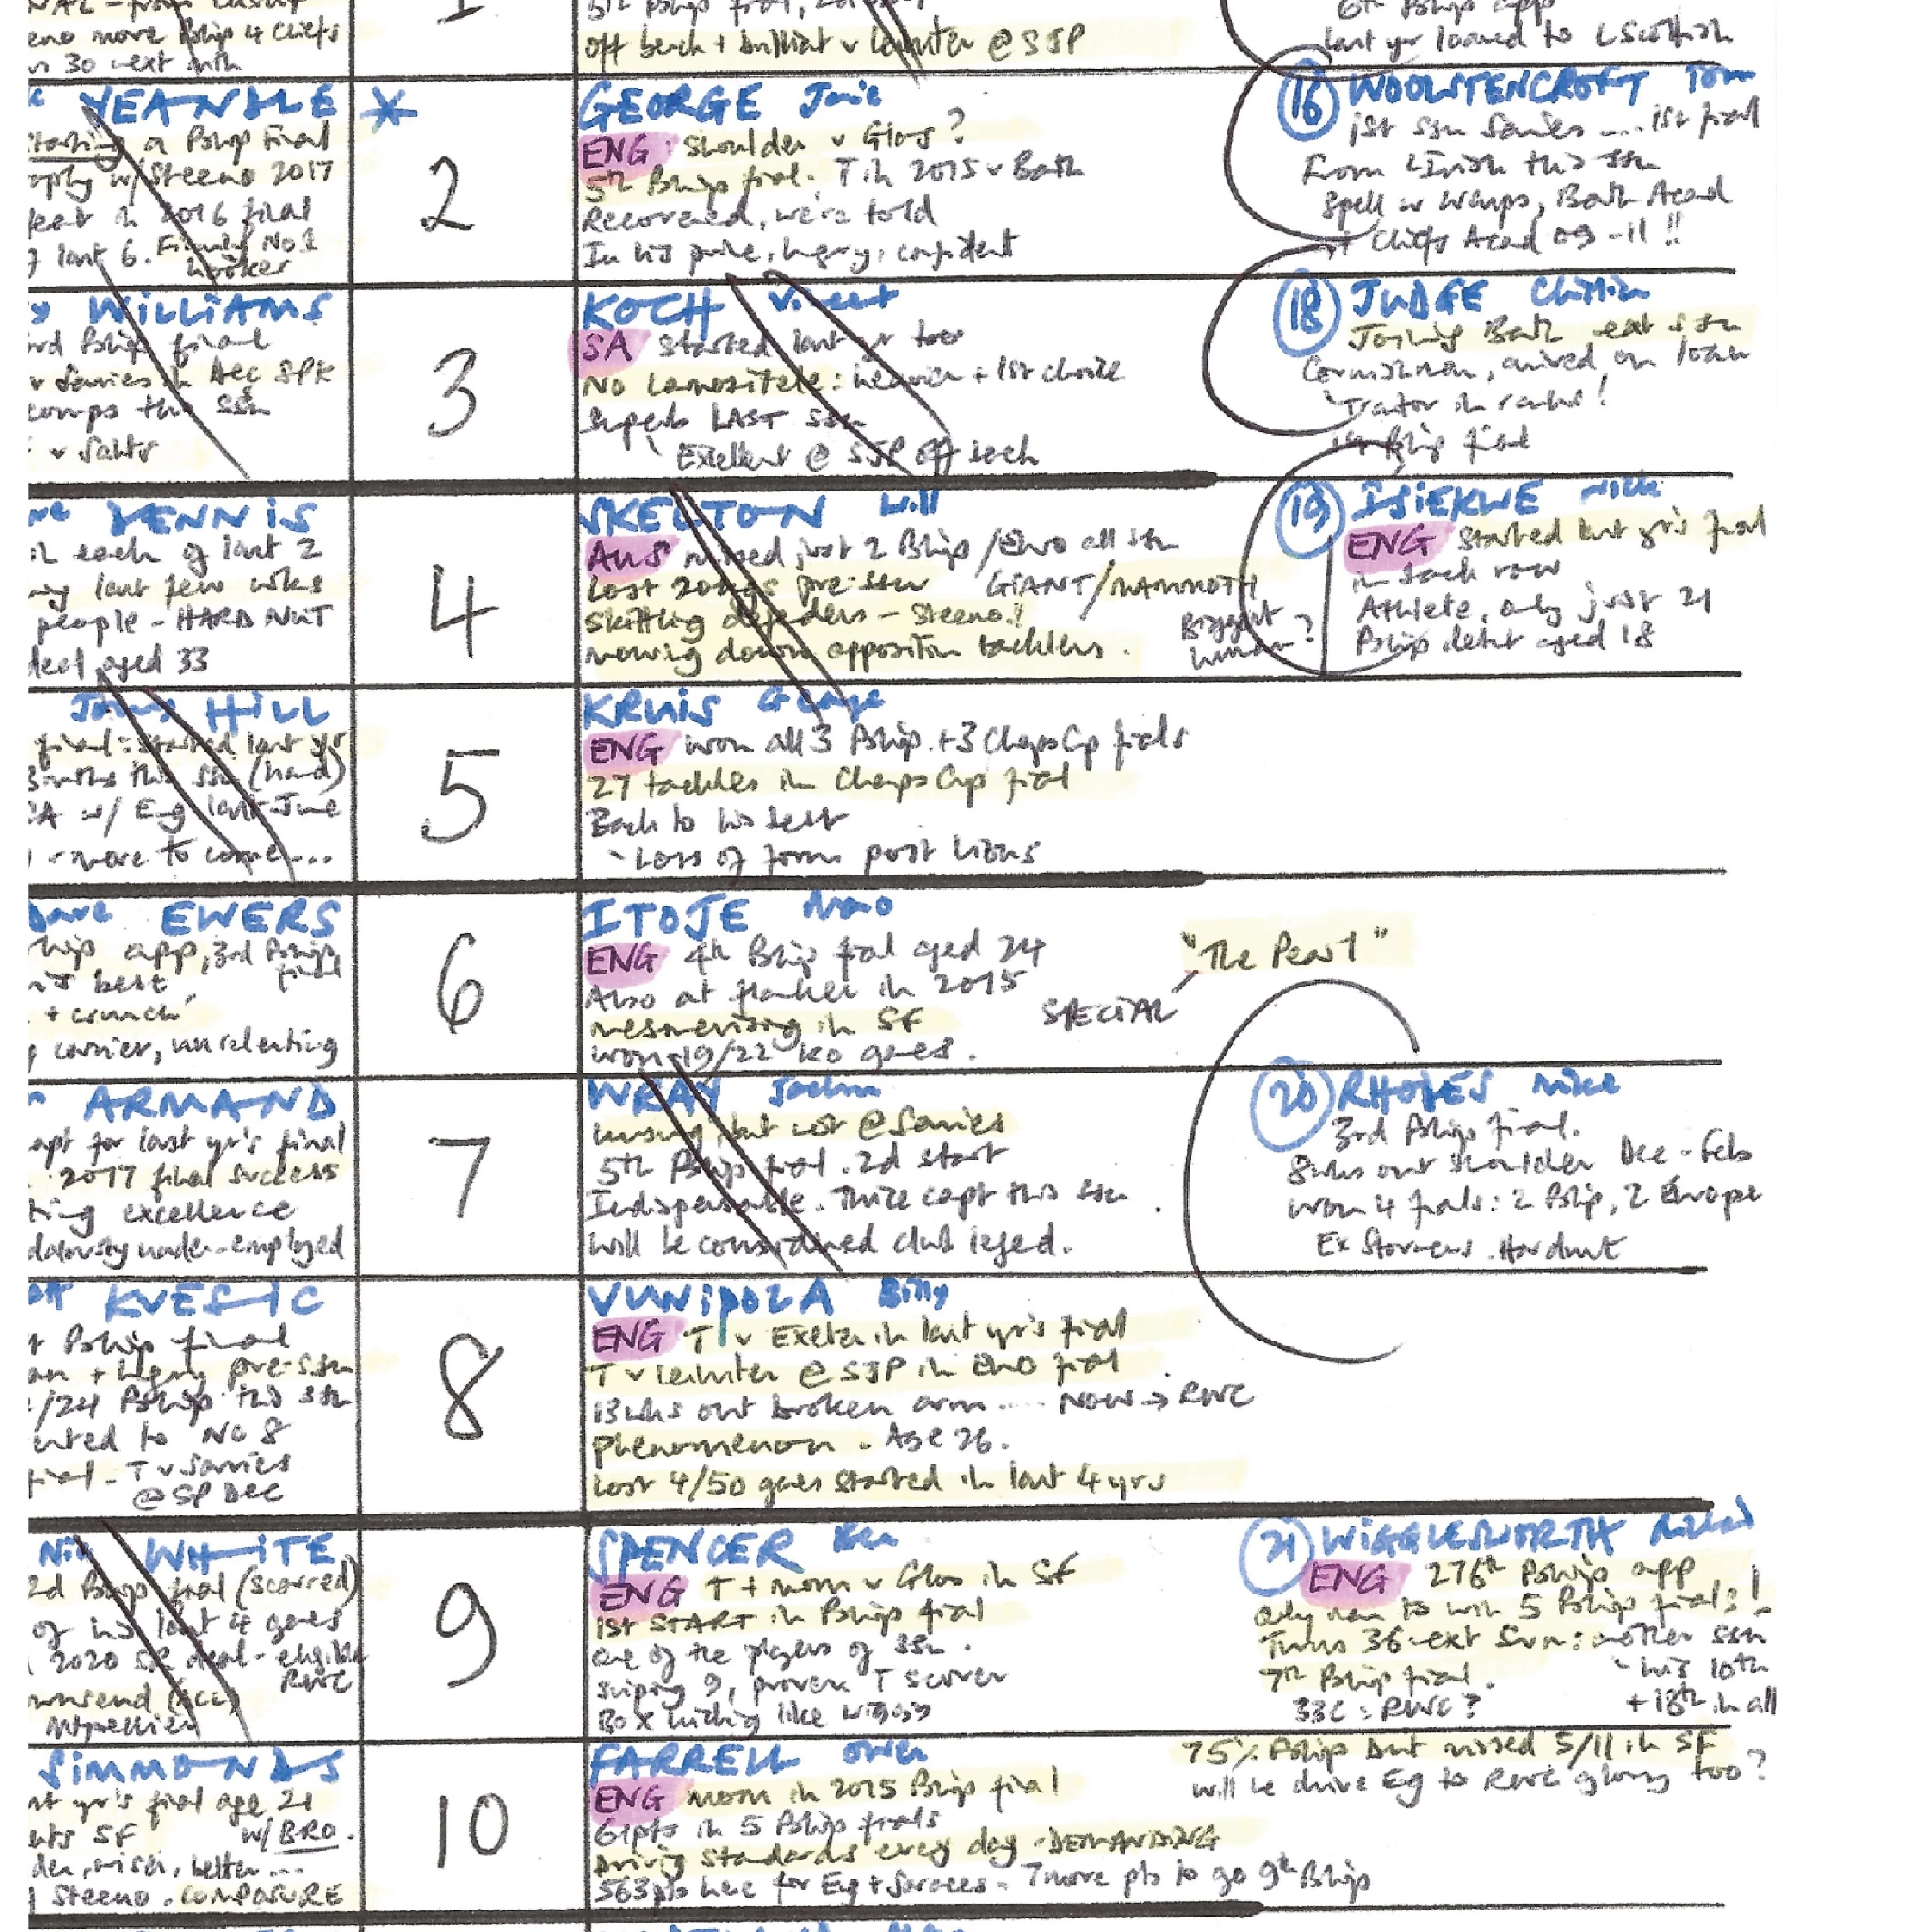 eno more Bship 4 Chiefs
30 next mth
1
5th Bship final,
off bench + brilliant v Leinster @ SJP
6th Bship app
last yr loaned to L Scottish
YEANDLE *
starting a Bship Final
w/ Steeno 2017
in 2016 final
last 6. Firmly No1
hooker
2
GEORGE Jamie
ENG shoulder v Glos?
5th Bship final. T in 2015 v Bath
Recovered, we're told
In his prime, hungry, confident
16 WOOLSTENCROFT Tom
1st ssn Sarries .... 1st final
From L Irish this ssn
Spell w Wasps, Bath Acad
+ Chiefs Acad 09-11 !!
WILLIAMS
3rd Bship final
v Sarries in Dec SPK
comps this ssn
v Saints
3
KOCH Vincent
SA started last yr too
No Lamositele: heavier + 1st choice
Superb LAST ssn
Excellent @ SJP off bench
18 JUDGE Christian
Joining Bath next ssn
Cornishman, arrived on loan
Traitor in ranks!
1st Bship final
DENNIS
in each of last 2
last few wks
people - HARD NUT
deal aged 33
4
SKELTON Will
AUS missed just 2 Bship/Euro all ssn
Lost 20kgs pre-ssn GIANT/MAMMOTH
Skittling defenders - Steeno!!
mowing down opposition tacklers.
Biggest
human?
19 ISIEKWE Nick
ENG started last yr's final
in back row
Athlete, only just 21
Bship debut aged 18
Jonny HILL
final: started last yr
3 mths this ssn (hand)
SA w/ Eng last June
- more to come...
5
KRUIS George
ENG won all 3 Bship + 3 Champs Cp finals
27 tackles in Champs Cup final
Back to his best
- Loss of form post Lions
Dave EWERS
Bship app, 3rd Bship
final
best,
+ crunch
carrier, unrelenting
6
ITOJE Maro
ENG 4th Bship final aged 24
Also at flanker in 2015
mesmerising in SF
won 19/22 KO games.
SPECIAL
"The Pearl"
ARMAND
capt for last yr's final
2017 final success
excellence
under-employed
7
WRAY Jackson
unsung but not @ Sarries
5th Bship final. 2d start
Indispensable. Thrice capt this ssn
will be considered club legend.
20 RHODES Mike
3rd Bship final.
8wks out shoulder Dec-Feb
won 4 finals: 2 Bship, 2 Europe
Ex Stormers. Hardnut
KVESIC
Bship final
+ hungry pre-ssn
/24 Bship this ssn
to No 8
final - T v Sarries
@ SP Dec
8
VUNIPOLA Billy
ENG T v Exeter in last yr's final
T v Leinster @ SJP in Euro final
13wks out broken arm ..... Now → RWC
Phenomenon. Age 26.
Lost 4/50 games started in last 4 yrs
Nic WHITE
2d Bship final (scarred)
of his last 4 games
2020 SR deal - eligible
RWC
Townsend (ACL)
Mtpellier
9
SPENCER Ben
ENG T + mom v Glos in SF
1st START in Bship final
one of the players of ssn.
sniping 9, proven T scorer
Box kicking like Wiggy
21 WIGGLESWORTH Richard
ENG 276th Bship app
only man to win 5 Bship finals!
Turns 36. ext Sun: another ssn
7th Bship final. - his 10th
33C: RWC? + 18th in all
SIMMONDS
last yr's final age 21
pts SF w/ BRO.
older, wiser, better...
Steeno. COMPOSURE
10
FARRELL Owen
ENG mom in 2015 Bship final
61pts in 5 Bship finals
Driving standards every day - DEMANDING
563pts here for Eng + Sarries. 7 more pts to go 9th Bship
75% Bship but missed 5/11 in SF
will he drive Eg to RWC glory too?